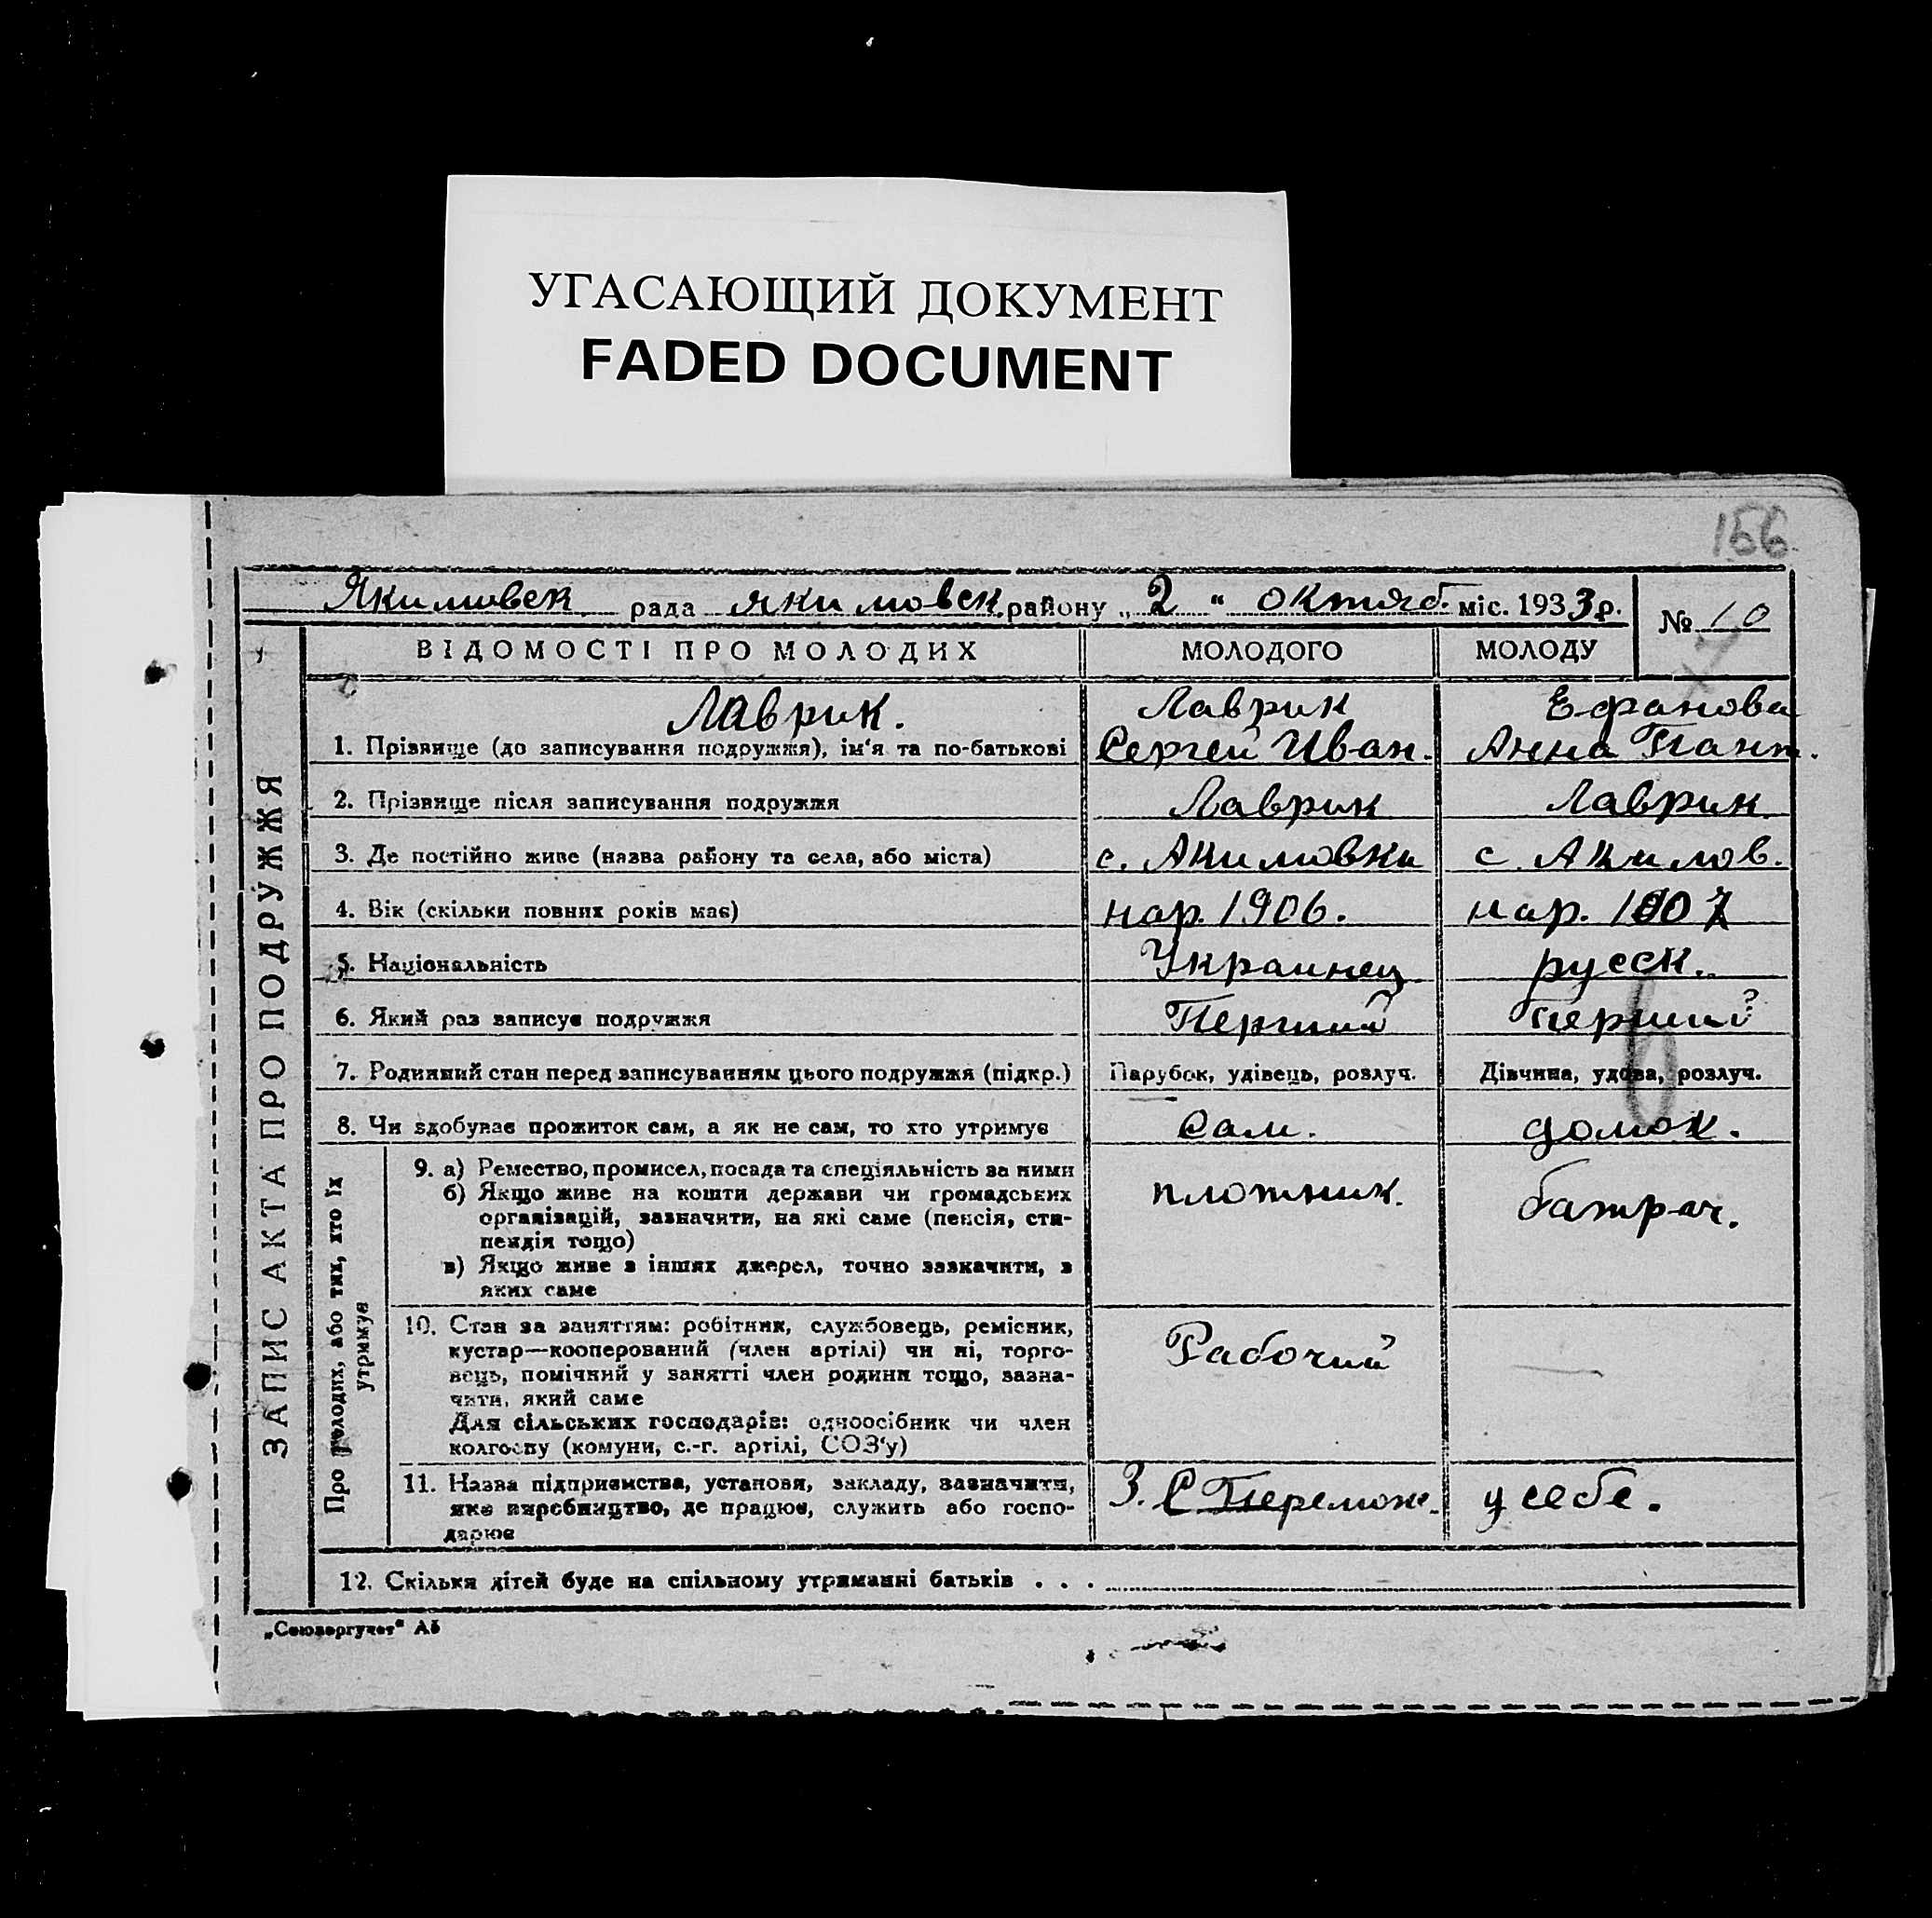 УГАСАЮЩИЙ ДОКУМЕНТ
FADED DOCUMENT
156
Якимовск рада якимовск. району „ 2 “ октяб. міс. 1933 р.
№ 10
ВІДОМОСТІ ПРО МОЛОДИХ МОЛОДОГО МОЛОДУ
ЗАПИС АКТА ПРО ПОДРУЖЖЯ
Лаврик. Лаврик Ефанова
1. Прізвище (до записування подружжя), ім‘я та по-батькові Сергей Иван. Анна Пант.
2. Прізвище після записування подружжя Лаврик Лаврик
3. Де постійно живе (назва району та села, або міста) с. Акимовки с. Акимов.
4. Вік (скільки повних років має) нар. 1906. нар. 1907
5. Національність Украинец русск.
6. Який раз записує подружжя Перший Перший
7. Родинний стан перед записуванням цього подружжя (підкр.) Парубок, удівець, розлуч. Дівчина, удова, розлуч.
8. Чи здобуває прожиток сам, а як не сам, то хто утримує Сам. домох.
Про молодих, або тих, хто їх
утримує
9. а) Ремество, промисел, посада та спеціяльність за ними
б) Якщо живе на кошти держави чи громадських плотник. батрач.
організацій, зазначити, на які саме (пенсія, сти-
пендія тощо)
в) Якщо живе з інших джерел, точно зазначити, з
яких саме
10. Стан за заняттям: робітник, службовець, ремісник,
кустар—кооперований (член артілі) чи ні, торго- Рабочий
вець, помічний у занятті член родини тощо, зазна-
чити, який саме
Для сільських господарів: одноосібник чи член
колгоспу (комуни, с.-г. артілі, СОЗ‘у)
11. Назва підприємства, установи, закладу, зазначити, З. С Перемож. у себе.
яке виробництво, де працює, служить або госпо-
дарює
12. Скільки дітей буде на спільному утриманні батьків . . .
„Союзоргучет“ А5